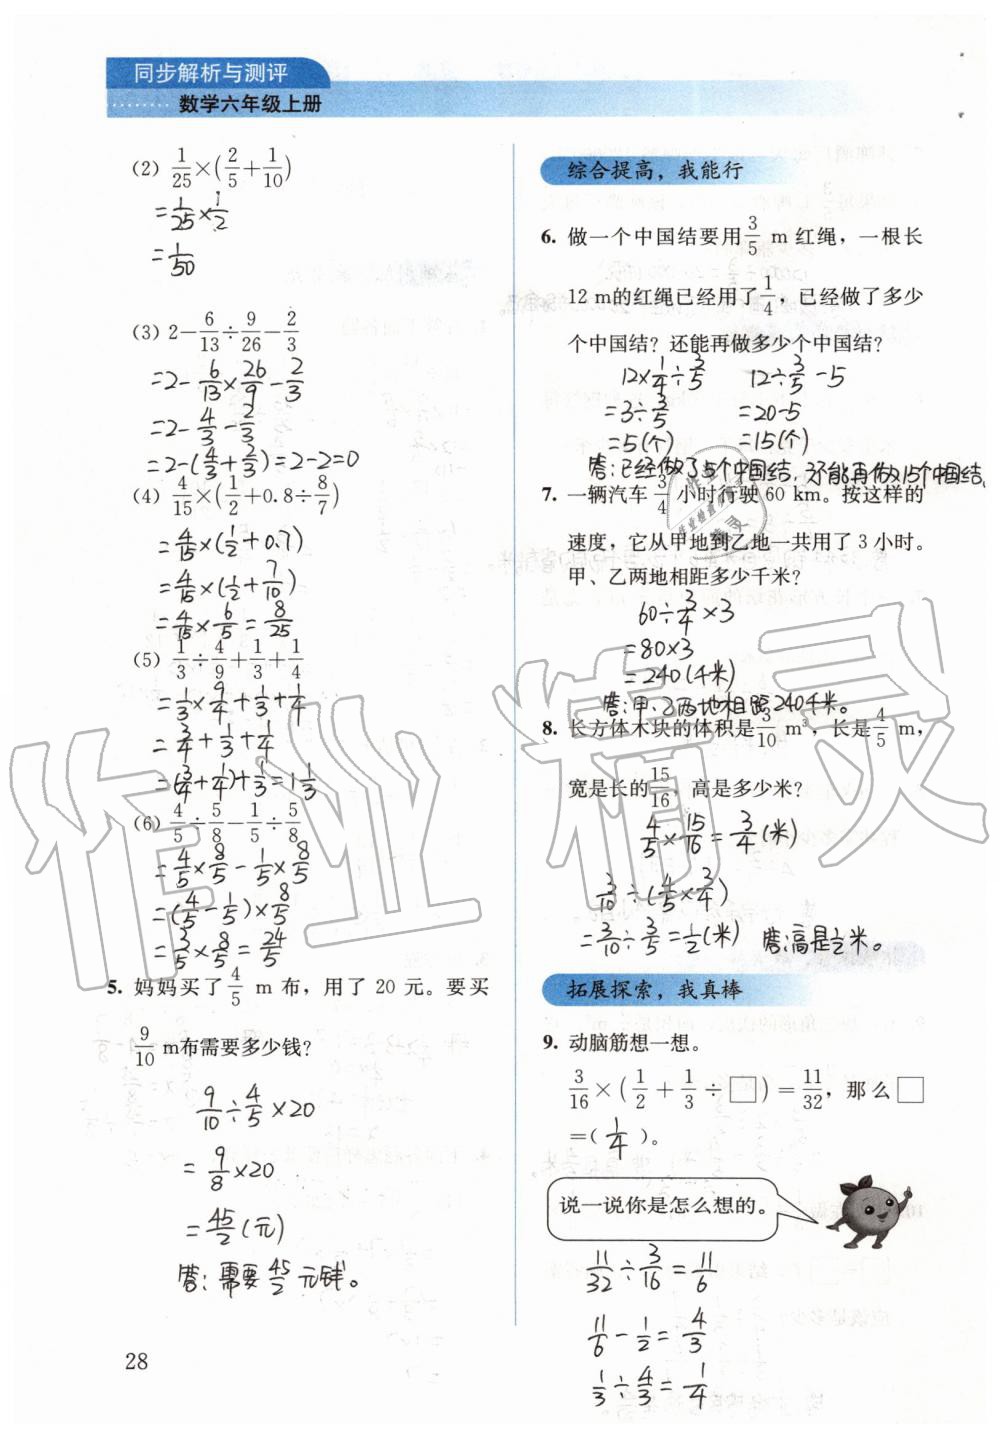 同步解析与测评
数学六年级上册
(2) 1/25×(2/5+1/10)
=1/25×1/2
=1/50
(3) 2-6/13÷9/26-2/3
=2-6/13×26/9-2/3
=2-4/3-2/3
=2-(4/3+2/3)=2-2=0
(4) 4/15×(1/2+0.8÷8/7)
=4/15×(1/2+0.7)
=4/15×(1/2+7/10)
=4/15×6/5=8/25
(5) 1/3÷4/9+1/3+1/4
=1/3×9/4+1/3+1/4
=3/4+1/3+1/4
=(3/4+1/4)+1/3=1 1/3
(6) 4/5÷5/8-1/5÷5/8
=4/5×8/5-1/5×8/5
=(4/5-1/5)×8/5
=3/5×8/5=24/5
5. 妈妈买了4/5 m布，用了20元。要买
9/10 m布需要多少钱？
9/10÷4/5×20
=9/8×20
=45/2(元)
答：需要45/2元钱。
28
综合提高，我能行
6. 做一个中国结要用3/5 m红绳，一根长
12 m的红绳已经用了1/4，已经做了多少
个中国结？还能再做多少个中国结？
12×1/4÷3/5 12÷3/5-5
=3÷3/5 =20-5
=5(个) =15(个)
答：已经做了5个中国结，还能再做15个中国结。
7. 一辆汽车3/4小时行驶60 km。按这样的
速度，它从甲地到乙地一共用了3小时。
甲、乙两地相距多少千米？
60÷3/4×3
=80×3
=240(千米)
答：甲、乙两地相距240千米。
8. 长方体木块的体积是3/10 m³，长是4/5 m，
宽是长的15/16，高是多少米？
4/5×15/16=3/4(米)
3/10÷(4/5×3/4)
=3/10÷3/5=1/2(米) 答：高是1/2米。
拓展探索，我真棒
9. 动脑筋想一想。
3/16×(1/2+1/3÷□)=11/32，那么□
=(1/4)。
说一说你是怎么想的。
11/32÷3/16=11/6
11/6-1/2=4/3
1/3÷4/3=1/4
作业精灵